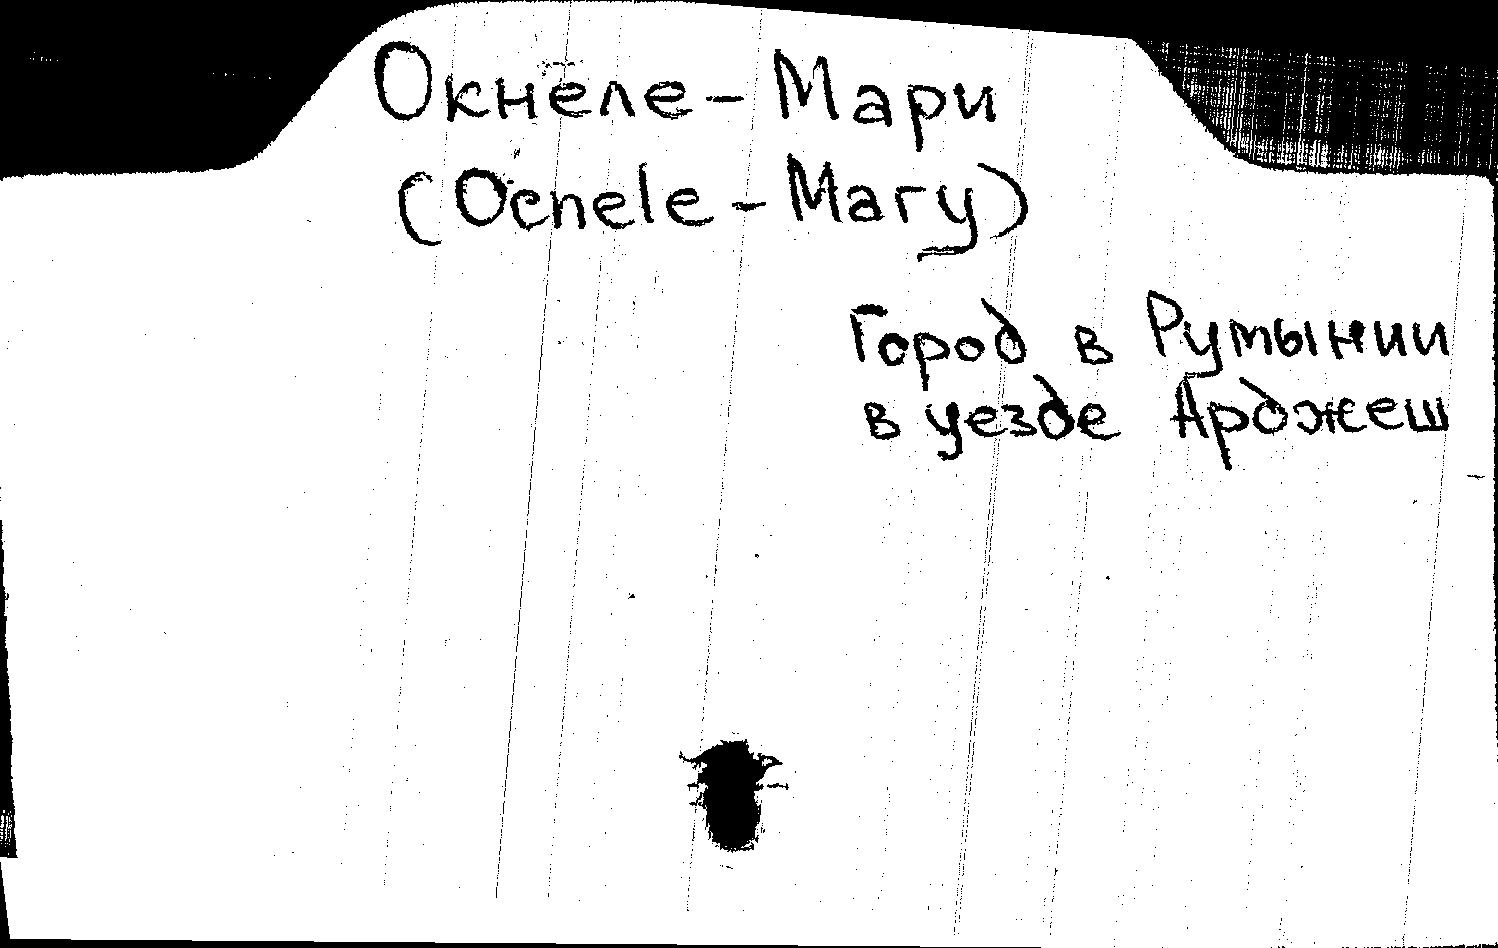 Окнеле-Мари
(Ocnele-Mary)
Город в Румынии
в уезде Арджеш